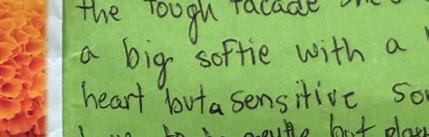 the tough facade
a big softie with a
heart but a sensitive
but